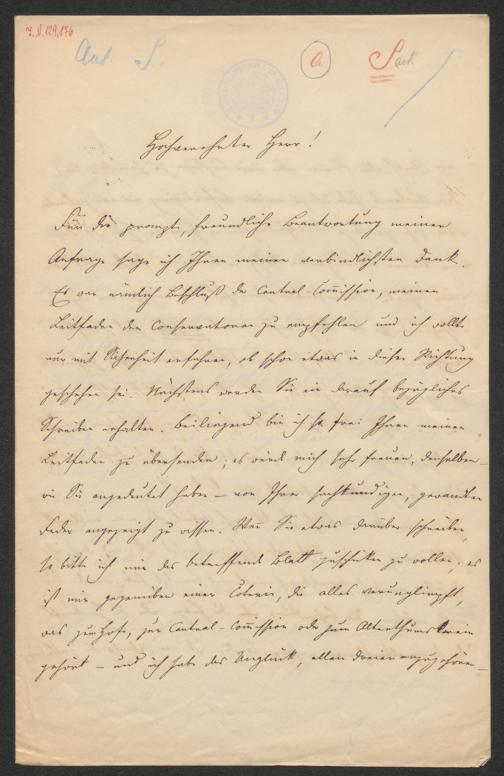 I.N. 129.176
Aut. S.
a
Sack
Hochverehrter Herr!
Für die prompte, freundliche Beantwortung meiner
Anfrage sage ich Ihnen meinen verbindlichsten Dank.
Es war nämlich Beschluß der Central-Com̅ission, meinen
Leitfaden den Conservatoren zu empfehlen und ich wollte
nur mit Sicherheit erfahren, ob schon etwas in dieser Richtung
geschehen sei. Nächstens werden Sie ein darauf bezügliches
Schreiben erhalten. Beiliegend bin ich so frei Ihnen meinen
Leitfaden zu übersenden; es wird mich sehr freuen, denselben –
wie Sie angedeutet haben – von Ihrer sachkundigen, gewandten
Feder angezeigt zu wissen. Wen̅ Sie etwas darüber schreiben,
so bitte ich mir das betreffende Blatt zuschicken zu wollen; es
ist mir gegenüber einer Coterie, die alles verunglimpft,
was zum Hofe, zur Central-Com̅ission oder zum Alterthumsverein
gehört – und ich habe das Unglück, allen dreien anzugehören –